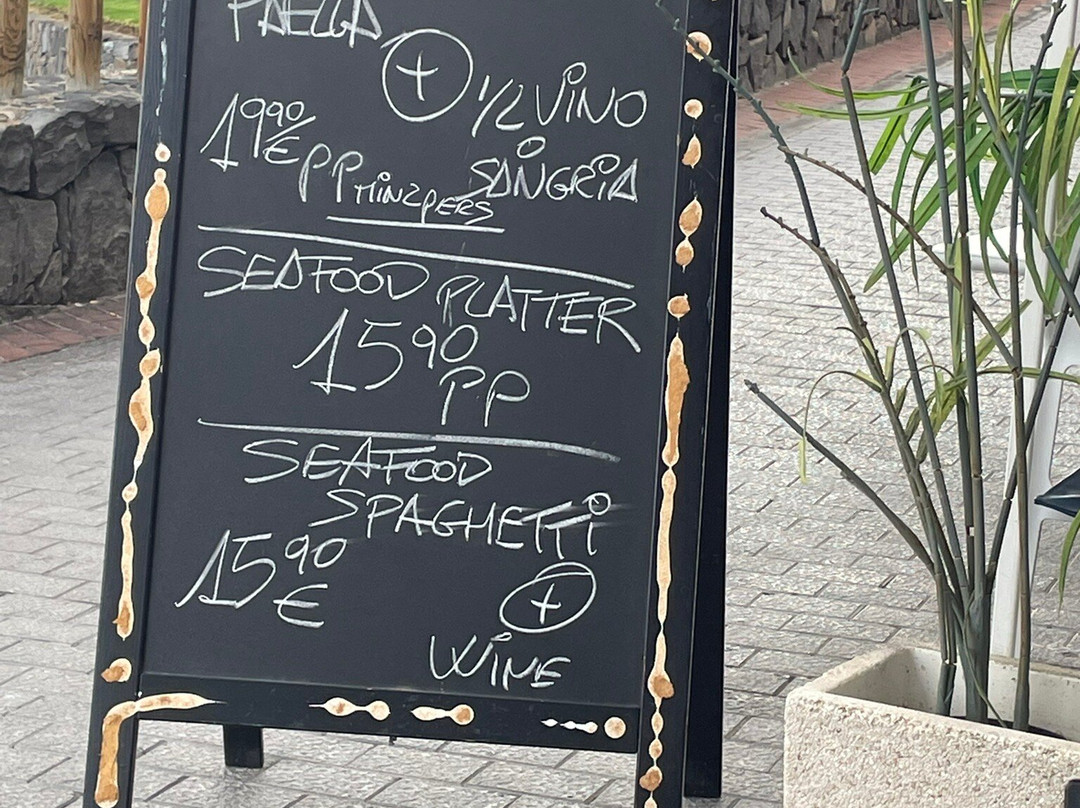 PAELLA
+ 1/2 VINO
19,90 € PP MIN 2 PERS SANGRIA
SEAFOOD PLATTER
15 90
PP
SEAFOOD
SPAGHETTI
15 90
€ +
WINE